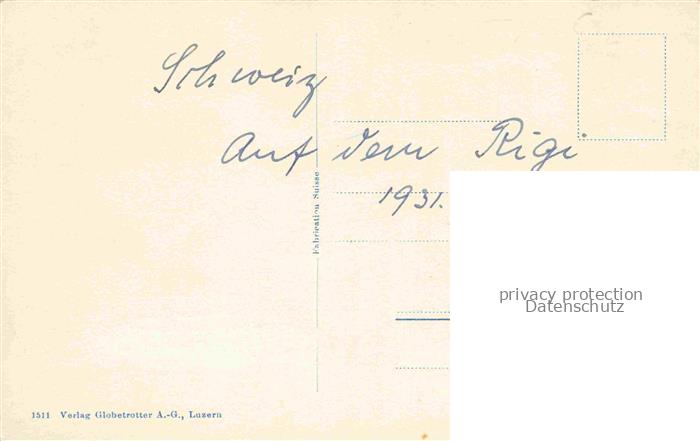 Schweiz
Auf dem Rigi
1931.
Fabrication Suisse
privacy protection
Datenschutz
1511 Verlag Globetrotter A.-G., Luzern